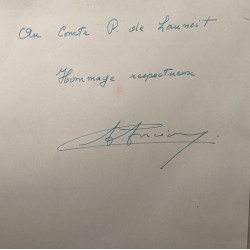 Au Comte P. de Launoit
Hommage respectueux